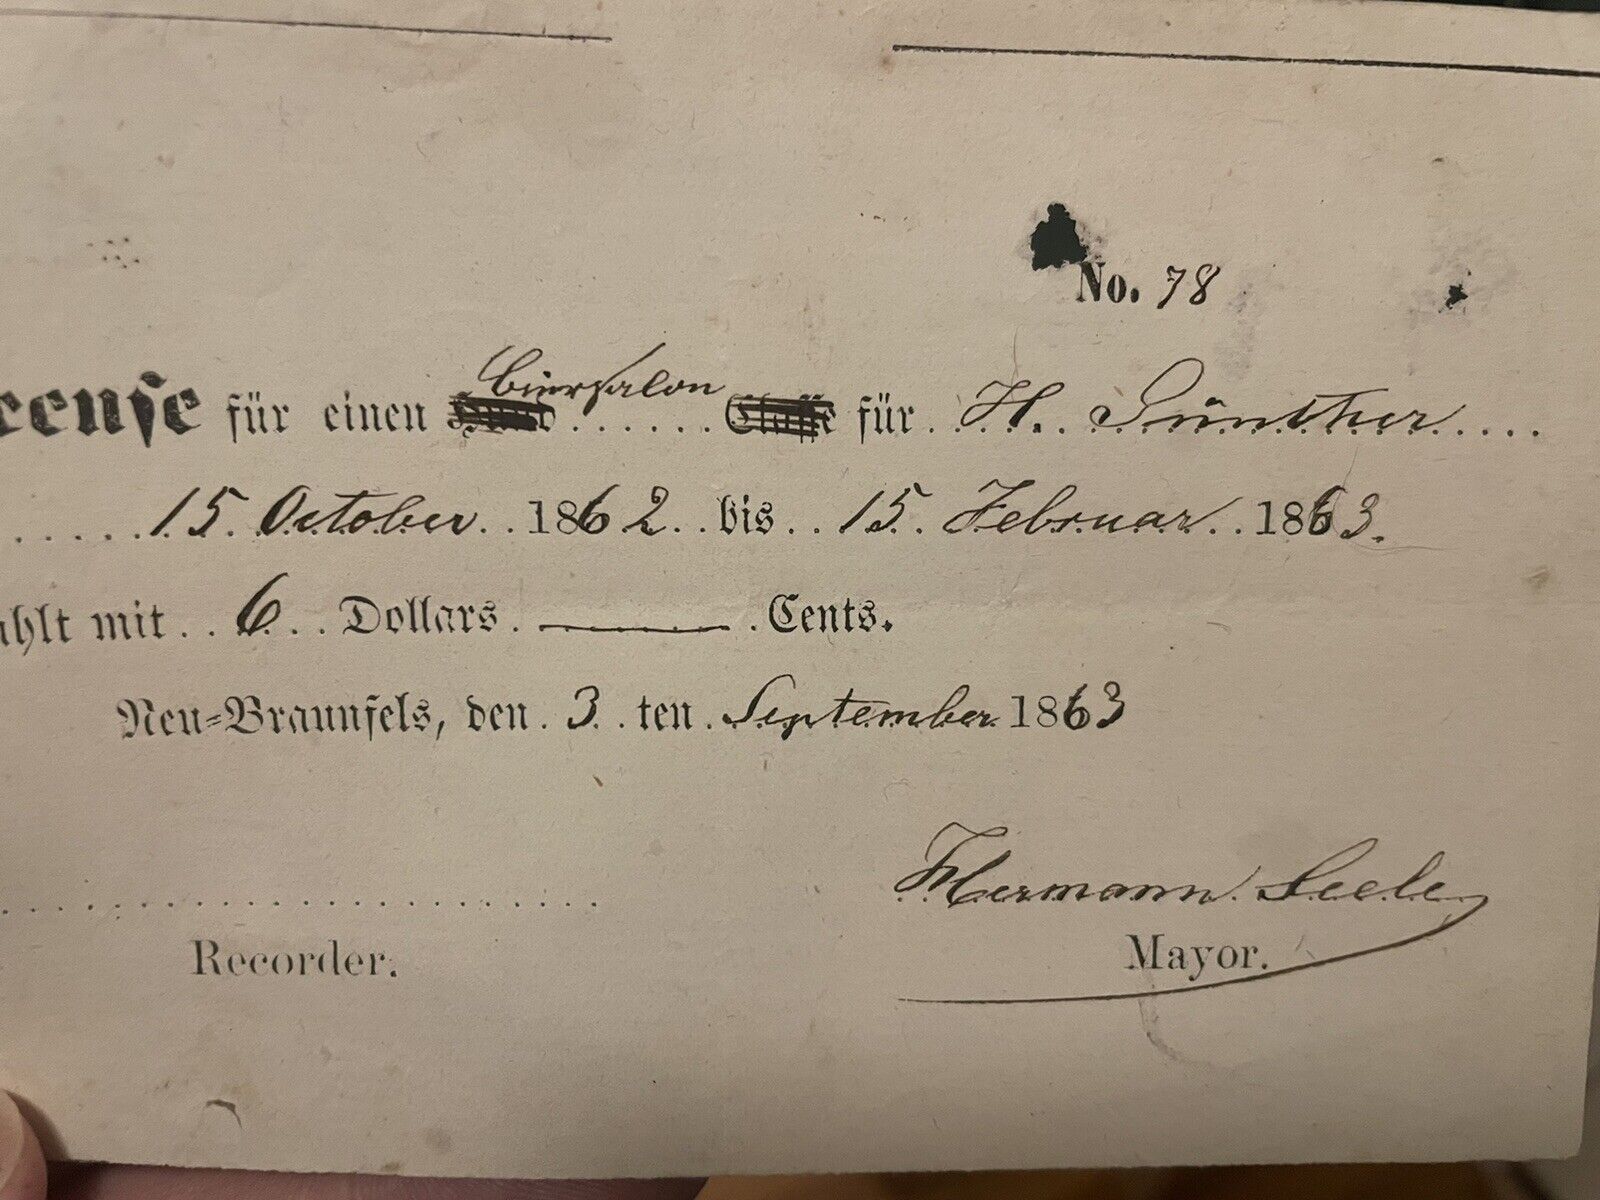 No. 78
cense für einen Biersalon ...... Classe für. H. Günther ....
......15. October. .1862. .bis. .15. Februar. .1863.
ahlt mit. .6. .. Dollars. ——— .Cents.
Neu=Braunfels, den. 3. .ten. September 1863
Hermann Seele
Recorder.
Mayor.